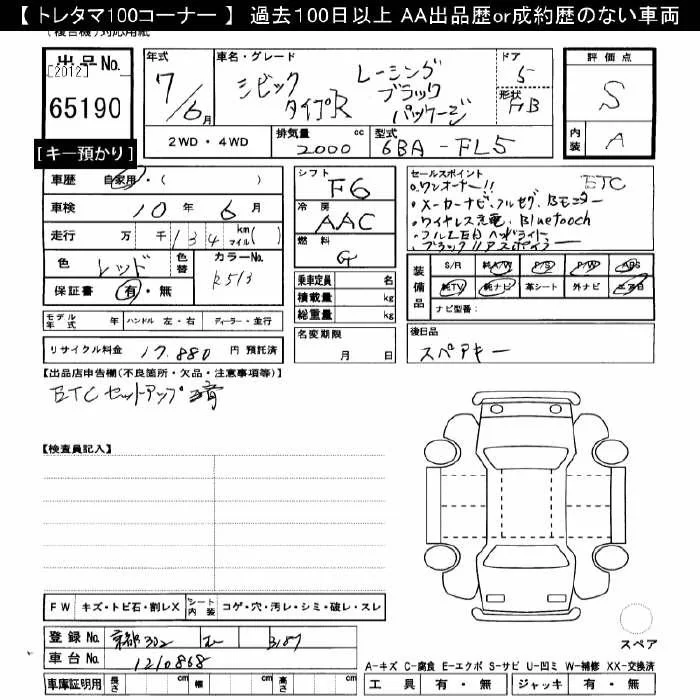 【 トレタマ100コーナー 】 過去100日以上 AA出品歴or成約歴のない車両
(複合機)対応用紙
出品No.
[2012]
65190
[キー預かり]
年式
7/6月
車名・グレード
シビック レーシング
タイプR ブラック
パッケージ
ドア
5
形状
HB
評価点
S
内装
A
2WD・4WD
排気量 2000 cc
型式 6BA-FL5
車歴 自家用・( )
車検 10年 6月
走行 万 千 134 km マイル( )
色 レッド 色替 カラーNo. R513
保証書 有・無
シフト F6
冷房 AAC
燃料 G
乗車定員 名
積載量 kg
総重量 kg
セールスポイント
・ワンオーナー!! ETC
・メーカーナビ、フルセグ、Bモニター
・ワイヤレス充電、Bluetooth
・フルLEDヘッドライト
・ブラックリアスポイラー
装備品
S/R 純A/W P/S P/W ABS
純TV 純ナビ 革シート 外ナビ エアB
ナビ型番:
モデル年式 年 ハンドル 左・右 ディーラー・並行
リサイクル料金 17,880 円 預託済
名変期限
月 日
後日品
スペアキー
【出品店申告欄(不良箇所・欠品・注意事項等)】
ETCセットアップ済
【検査員記入】
FW キズ・トビ石・割レX シート内装 コゲ・穴・汚レ・シミ・破レ・スレ
登録No. 京都302 む 3187
車台No. 1210868
車庫証明用 長さ cm 幅 cm 高さ cm
スペア
A-キズ C-腐食 E-エクボ S-サビ U-凹ミ W-補修 XX-交換済
工具 有・無 ジャッキ 有・無